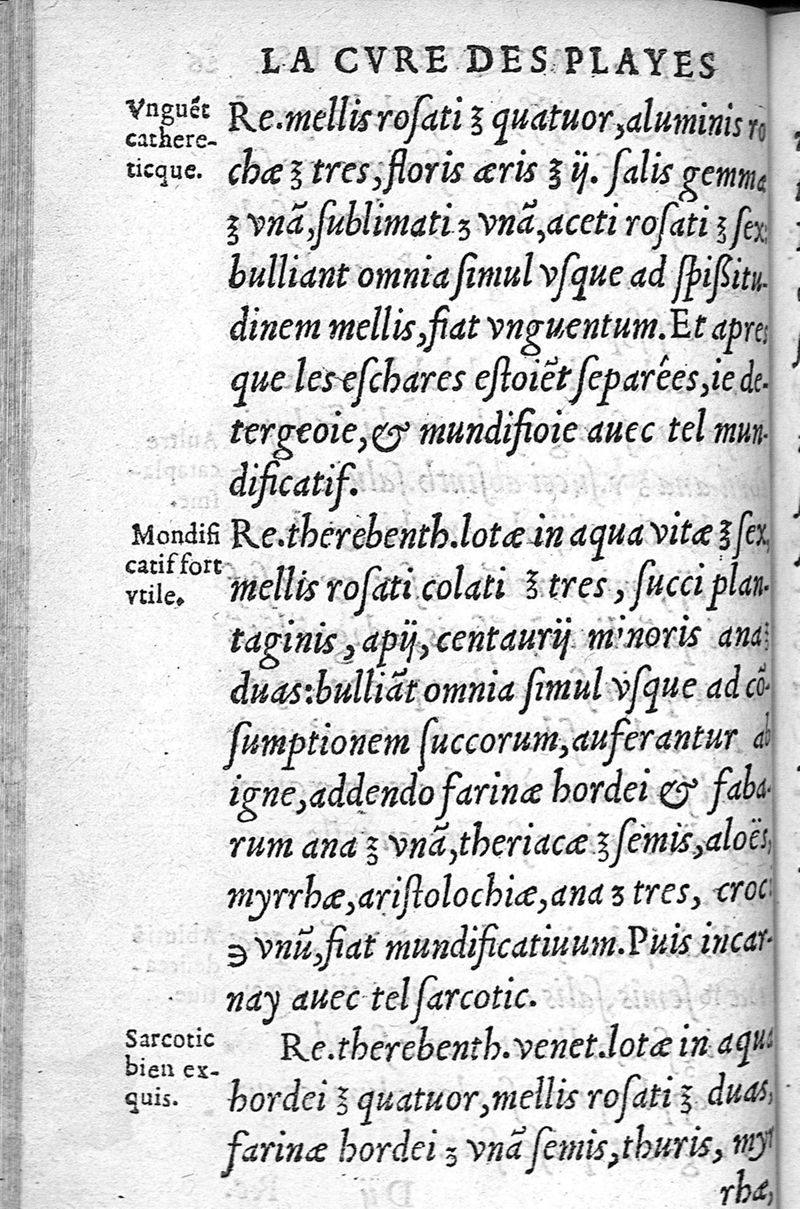 LA CVRE DES PLAYES
Vnguẽt
cathere-
ticque.
Re. mellis roſati ℥ quatuor, aluminis ro
chæ ℥ tres, floris æris ℥ ij. ſalis gemmæ
℥ vnã, ſublimati ʒ vnã, aceti roſati ℥ ſex:
bulliant omnia ſimul vſque ad ſpißitu-
dinem mellis, fiat vnguentum. Et apres
que les eſchares eſtoiẽt ſeparêes, ie de-
tergeoie, & mundifioie auec tel mun-
dificatif.
Mondifi
catif fort
vtile.
Re. therebenth. lotæ in aqua vitæ ℥ ſex,
mellis roſati colati ℥ tres, ſucci plan-
taginis, apij, centaurij minoris ana ℥
duas: bulliãt omnia ſimul vſque ad cõ-
ſumptionem ſuccorum, auferantur ab
igne, addendo farinæ hordei & faba-
rum ana ℥ vnã, theriacæ ℥ ſemis, aloës,
myrrhæ, ariſtolochiæ, ana ʒ tres, croci
℈ vnũ, fiat mundificatiuum. Puis incar-
nay auec tel ſarcotic.
Sarcotic
bien ex-
quis.
Re. therebenth. venet. lotæ in aqua
hordei ℥ quatuor, mellis roſati ℥ duas,
farinæ hordei ʒ vnã ſemis, thuris, myr
rhæ,